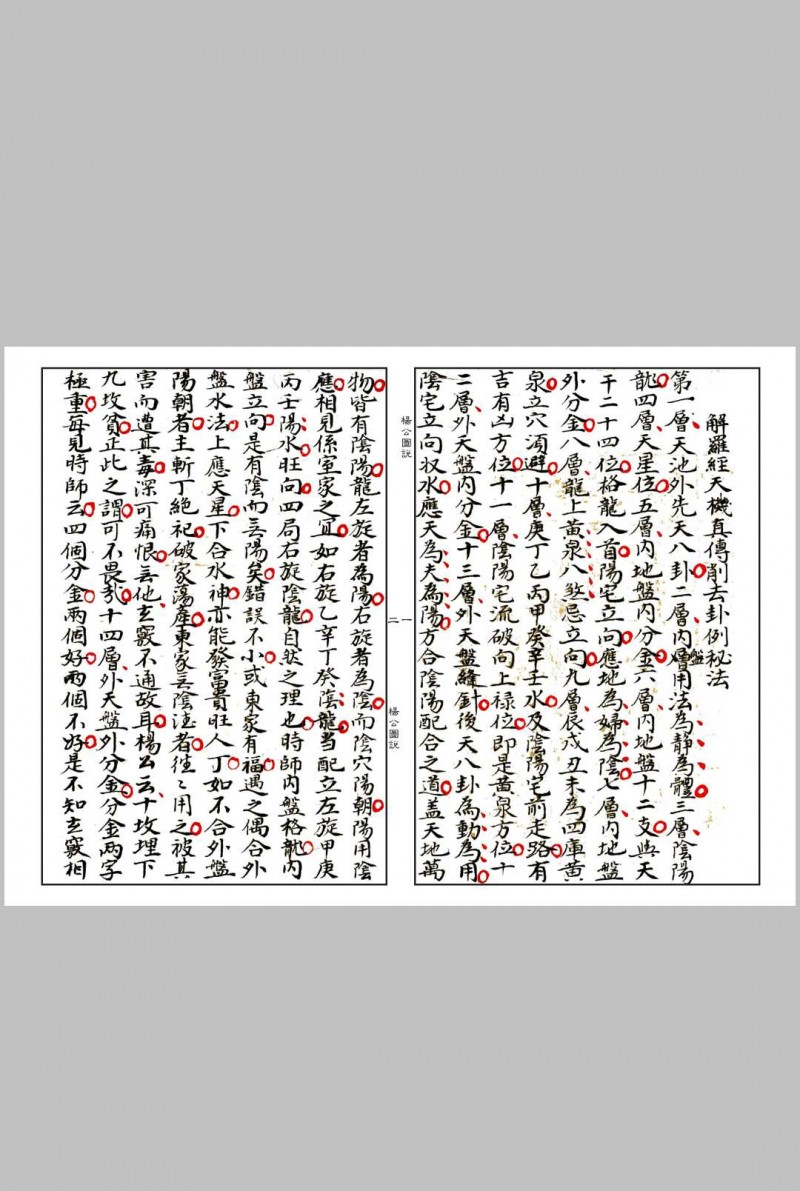 解羅經天機真傳削去卦例秘法
第一層天池外先天八卦二層內層盤用法為靜為體三層陰陽
龍四層天星位五層內地盤內分金六層內地盤十二支與天
干二十四位格龍入首陽宅立向應地為婦為陰七層內地盤
外分金八層龍上黃泉八煞忌立向九層辰戌丑未為四庫黃
泉立穴須避十層庚丁乙丙甲癸辛壬水及陰陽宅前走路有
吉有凶方位十一層陰陽宅流破向上祿位即是黃泉方位十
二層外天盤內分金十三層外天盤縫針後天八卦為動為用
陰宅立向収水應天為夫為陽方合陰陽配合之道盖天地萬
楊公圖說
一
二
楊公圖說
物皆有陰陽龍左旋者為陽右旋者為陰而陰穴陽朝陽用陰
應相見係室家之宜如右旋乙辛丁癸陰龍當配立左旋甲庚
丙壬陽水旺向四局右旋陰龍自然之理也時師內盤格龍內
盤立向是有陰而無陽矣錯誤不小或東家有福遇之偶合外
盤水法上應天星下合水神亦能發富貴旺人丁如不合外盤
陽朝者主斬丁絕祀破家蕩產東家無陰注者徃〻用之被其
害而遭其毒深可痛恨無他玄竅不通故耳楊公云十坟埋下
九坟貧正此之謂可不畏哉十四層外天盤外分金分金兩字
極重每見時師云四個分金兩個好兩個不好是不知玄竅相